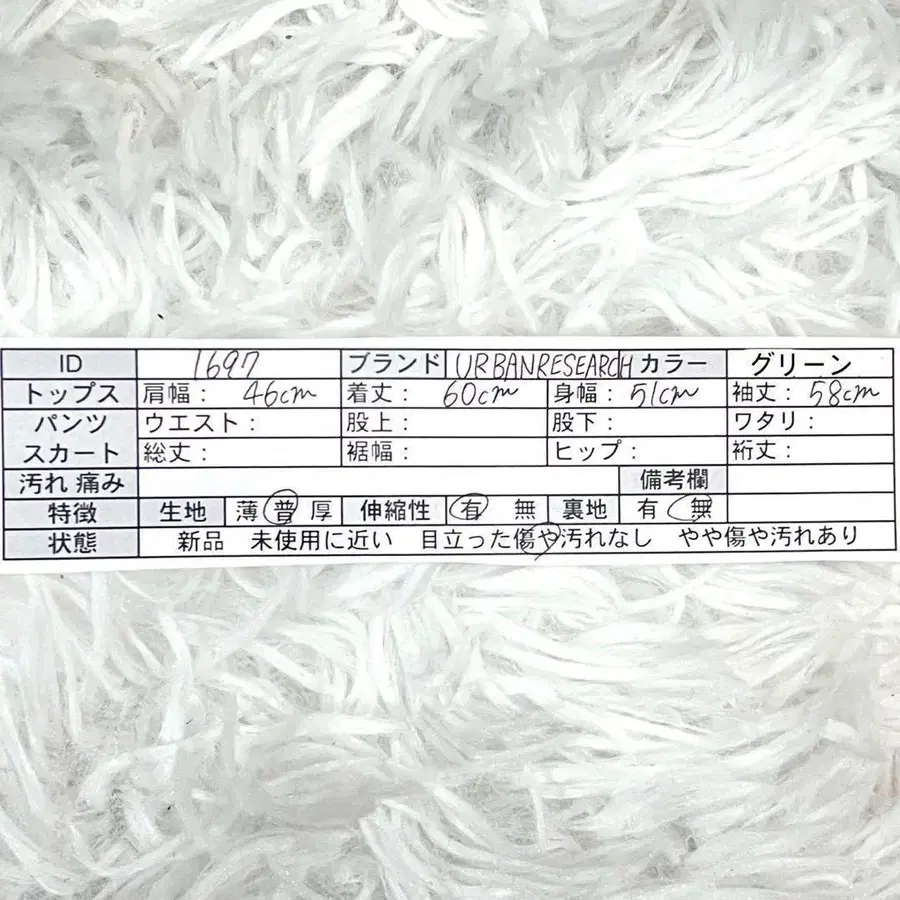 ID 1697 ブランド URBANRESEARCH カラー グリーン
トップス 肩幅： 46cm 着丈： 60cm 身幅： 51cm 袖丈： 58cm
パンツ ウエスト： 股上： 股下： ワタリ：
スカート 総丈： 裾幅： ヒップ： 裄丈：
汚れ 痛み 備考欄
特徴 生地 薄 普 厚 伸縮性 有 無 裏地 有 無
状態 新品 未使用に近い 目立った傷や汚れなし やや傷や汚れあり